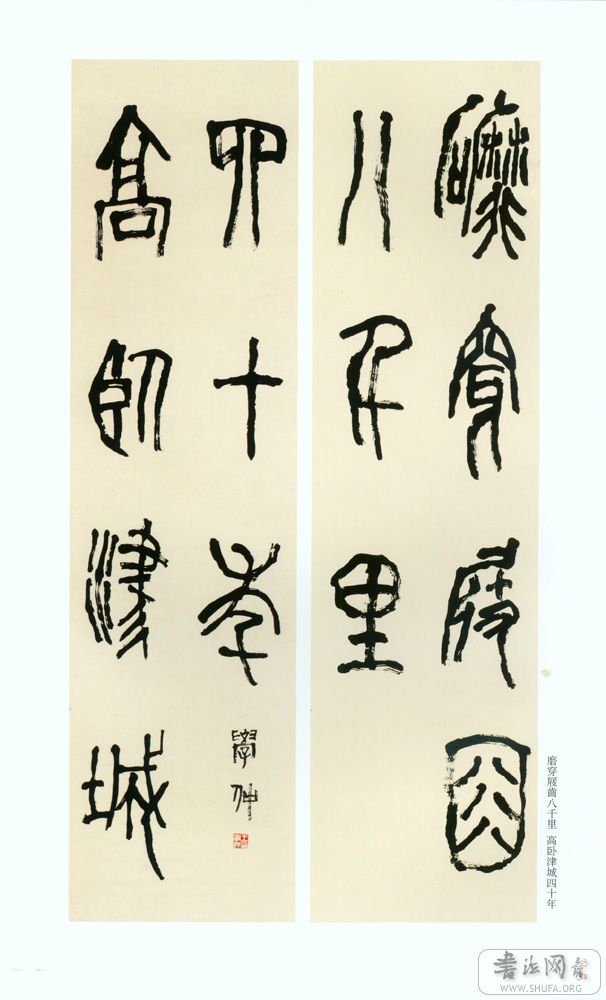 磨穿屐齒
八千里
高卧津城
四十年
學仲
磨穿屐齒八千里 高卧津城四十年
书法网
WWW.SHUFA.ORG